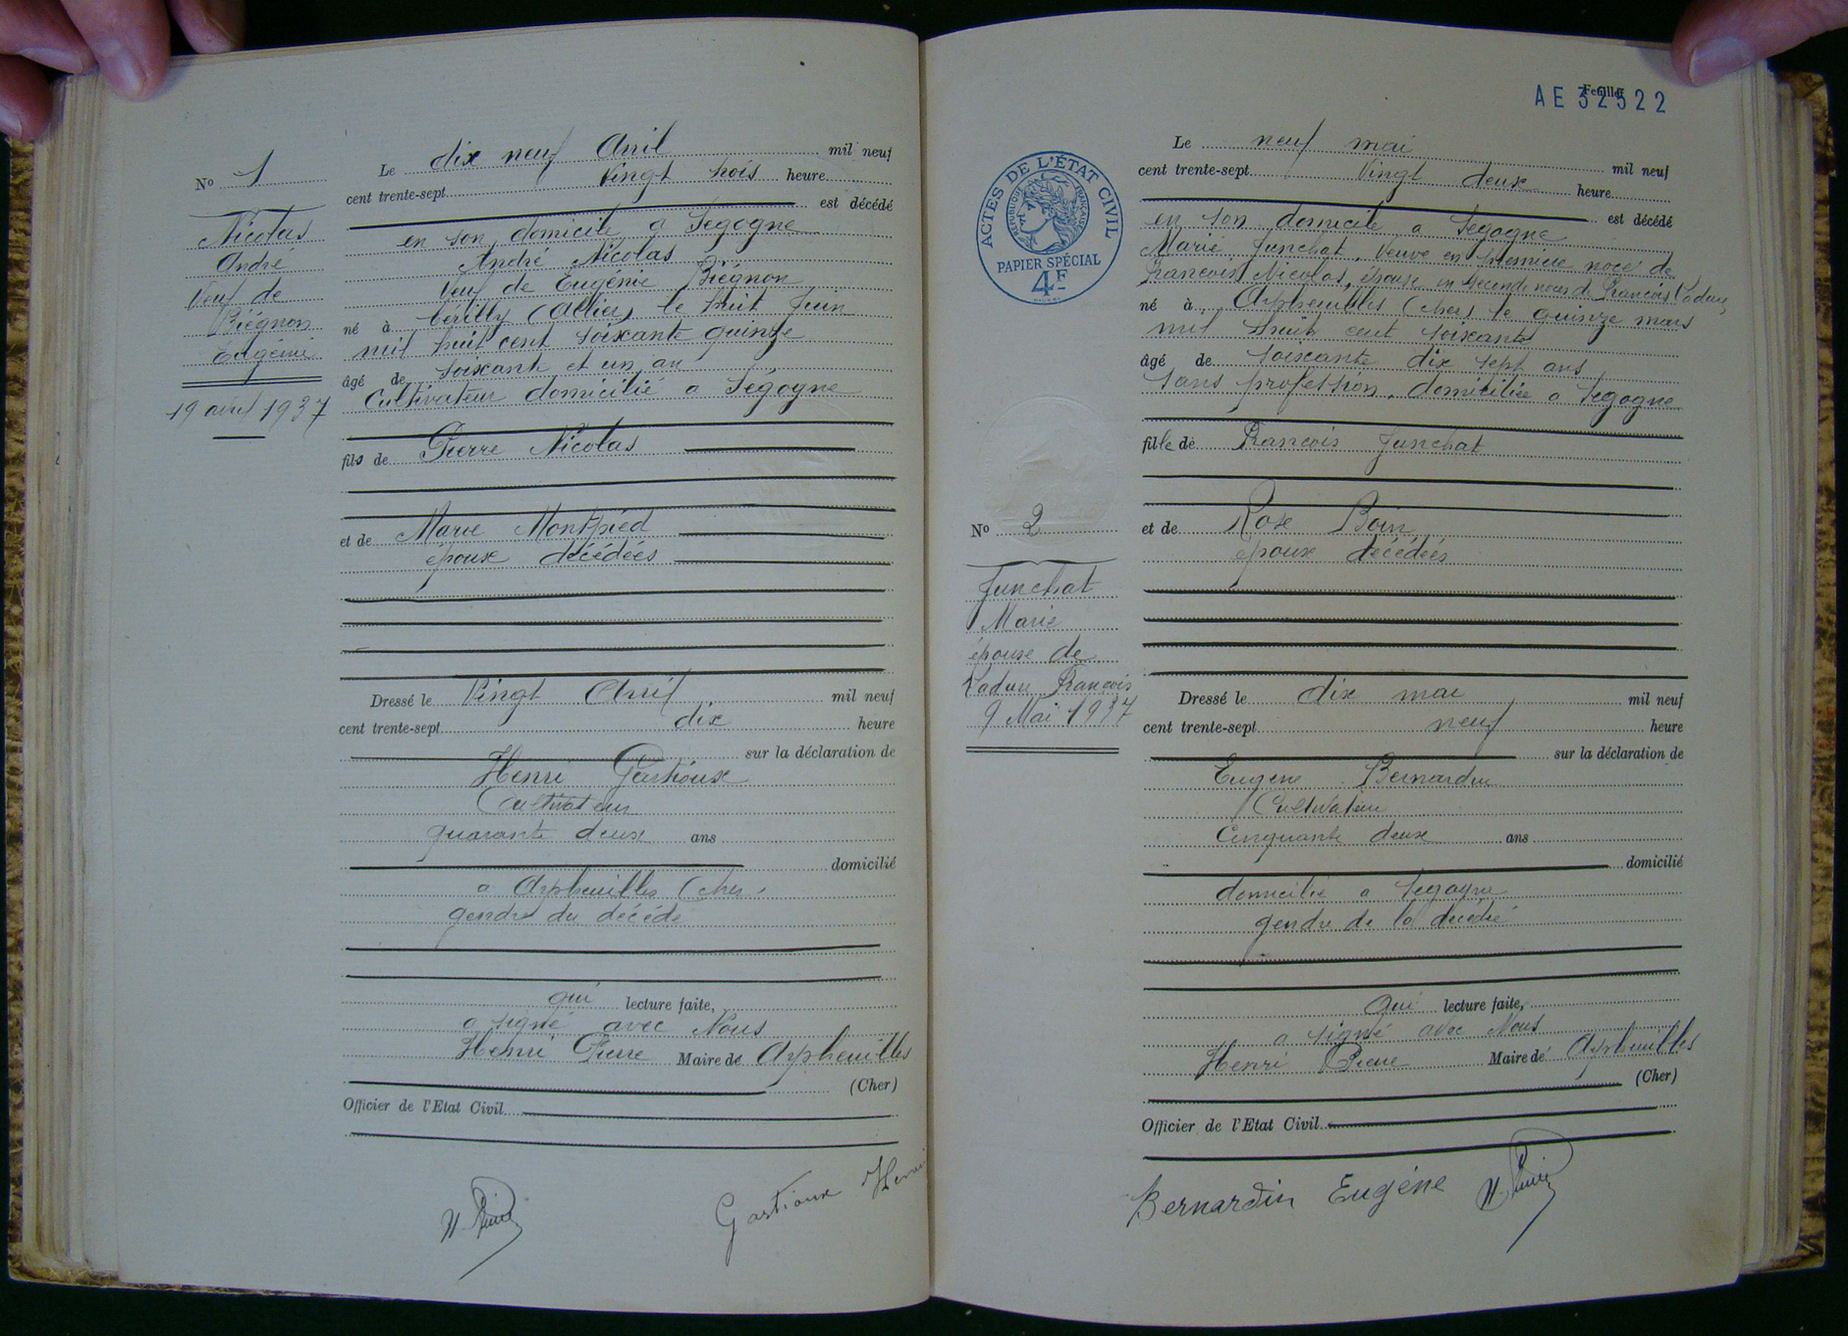 No 1
Nicolas
André
Veuf de
Piégnon
Eugénie
19 avril 1937
Le dix neuf Avril mil neuf
cent trente-sept vingt trois heure
est décédé
en son domicile a Segogne
André Nicolas
Veuf de Eugénie Piégnon
né à Cerilly (Allier) le huit Juin
mil huit cent soixante quinze
âgé de soixante et un an
Cultivateur domicilié a Ségogne
fils de Pierre Nicolas
et de Marie Montpied
époux décédées
Dressé le Vingt Avril mil neuf
cent trente-sept dix heure
sur la déclaration de
Henri Gastioux
Cultivateur
quarante deux ans
domicilié
a Arpheuilles (Cher)
gendre du décédé
qui lecture faite,
a signé avec Nous
Henri Pierre Maire de Arpheuilles
(Cher)
Officier de l'Etat Civil
Gastioux Henri
AE 32522
Feuillet
ACTES DE L'ÉTAT CIVIL
RÉPUBLIQUE FRANÇAISE
PAPIER SPÉCIAL
4F
No 2
Junchat
Marie
épouse de
Vadun Francois
9 Mai 1937
Le neuf mai mil neuf
cent trente-sept Vingt deux heure
est décédé
en son domicile a Segogne
Marie Junchat, Veuve en premiere noce de
Francois Nicolas, épouse en seconde noces de Francois Vadun
né à Arpheuilles (Cher) le quinze mars
mil huit cent soixante
âgé de soixante dix sept ans
sans profession, domiciliée a Segogne
fille de Francois Junchat
et de Rose Boin
époux décédés
Dressé le dix mai mil neuf
cent trente-sept neuf heure
sur la déclaration de
Eugene Bernardin
Cultivateur
Cinquante deux ans
domicilié
domicilié a Segogne
gendre de la décédé
Qui lecture faite,
a signé avec Nous
Henri Pierre Maire de Arpheuilles
(Cher)
Officier de l'Etat Civil
Bernardin Eugéne